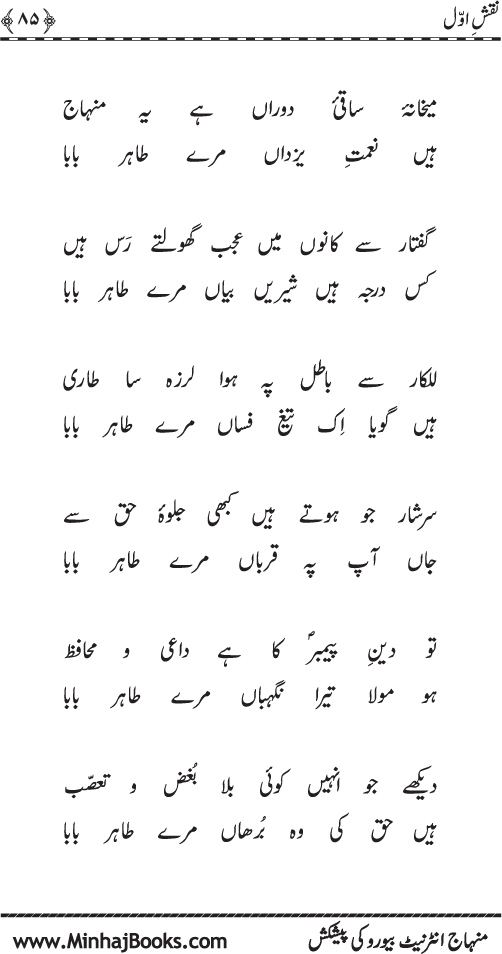 نقشِ اوّل
﴿۸۵﴾
میخانۂ ساقیٔ دوراں ہے یہ منہاج
ہیں نعمتِ یزداں مرے طاہر بابا
گفتار سے کانوں میں عجب گھولتے رَس ہیں
کس درجہ ہیں شیریں بیاں مرے طاہر بابا
للکار سے باطل پہ ہوا لرزہ سا طاری
ہیں گویا اِک تیغ فساں مرے طاہر بابا
سرشار جو ہوتے ہیں کبھی جلوۂ حق سے
جاں آپ پہ قرباں مرے طاہر بابا
تو دینِ پیمبرؐ کا ہے داعی و محافظ
ہو مولا تیرا نگہباں مرے طاہر بابا
دیکھے جو انہیں کوئی بلا بُغض و تعصّب
ہیں حق کی وہ بُرھاں مرے طاہر بابا
منہاج انٹرنیٹ بیورو کی پیشکش
www.MinhajBooks.com